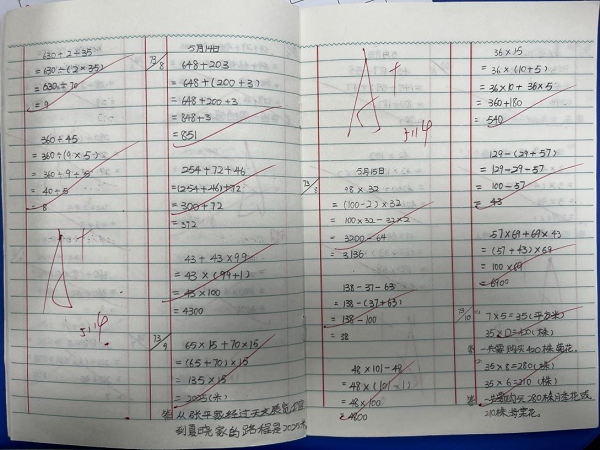 630÷2÷35
=630÷(2×35)
=630÷70
=9
360÷45
=360÷(9×5)
=360÷9÷5
=40÷5
=8
A+
5.14
5月14日
73/8
648+203
=648+(200+3)
=648+200+3
=848+3
=851
254+72+46
=(254+46)+72
=300+72
=372
43+43×99
=43×(99+1)
=43×100
=4300
73/9
65×15+70×15
=(65+70)×15
=135×15
=2025(米)
答:从张平家经过
到夏晓家的路程是2025米
A+
5月15日
98×32
=(100-2)×32
=100×32-32×2
=3200-64
=3136
138-37-63
=138-(37+63)
=138-100
=38
48×101-48
=48×(101-1)
=48×100
=4800
36×15
=36×(10+5)
=36×10+36×5
=360+180
=540
129-(29+57)
=129-29-57
=100-57
=43
57×69+69×43
=(57+43)×69
=100×69
=6900
73/10
7×5=35(平方米)
35×12=420(株)
答:一共要购买420株菊花。
35×8=280(株)
35×6=210(株)
答:一共要购买280株月季花或
210株芍药花。